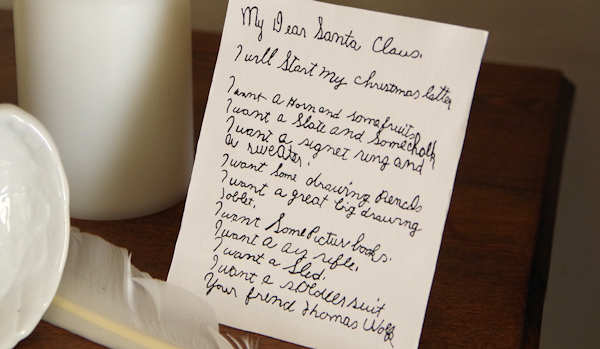 My Dear Santa Claus.
I will Start my christmas letter
I want a Horn and some fruits
I want a Slate and Some chalk
I want a signet ring and
a sweater.
I want Some drawing pencils
I want a great big drawing
I want Some Picture books.
I want a air rifle.
I want a Sled.
I want a soldier suit
Your frend Thomas Wolf